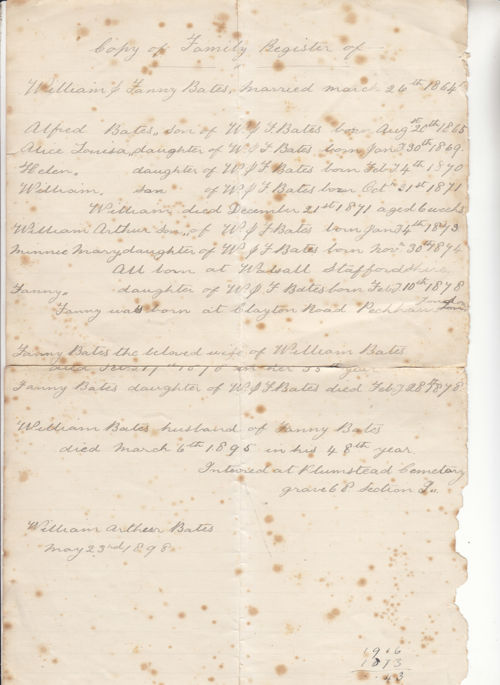 Copy of Family Register of
William & Fanny Bates, Married March 26th 1864
Alfred Bates, son of W & F Bates born Aug st 20th 1865
Alice Louisa, daughter of W & F Bates born Jany 30th 1869
Helen. daughter of W & F Bates born Feby 4th 1870
William. son of W & F Bates born Octr 21st 1871
William, died December 21st 1871 aged 6 weeks
William Arthur son, of W & F Bates born Jany 4th 1873
Minnie Mary daughter of W & F Bates born Novr 30th 1874
All born at Walsall Staffordshire,
Fanny. daughter of W & F Bates born Feby 10th 1878
Fanny was born at Clayton Road Peckham London
Fanny Bates the beloved wife of William Bates
died Feb 17th 1878 in her year
Fanny Bates daughter of W & F Bates died Feby 28th 1878
William Bates husband of Fanny Bates
died March 6th 1895 in his 48th year.
Intered at Plumstead Cemetary
grave 68 Section
William Arthur Bates
May 23rd 1898
1916
1873
43